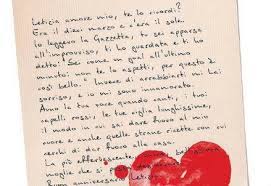 Letizia amore mio, te lo ricordi?
Era il dieci marzo e c'era il sole.
Io leggevo la Gazzetta, tu sei apparsa
all'improvviso, ti ho guardata e ti ho
detto: Sei come un goal all'ultimo
minuto: non te lo aspetti, per questo è
così bello. Invece di arrabbiarti mi hai
sorriso, e io mi sono innamorato.
Amo la tua voce quando canti, i tuoi
capelli rossi, le tue ciglia lunghissime,
il modo in cui sai dare fuoco al mio
cuore e anche quelle strane ricette con cui
cerchi di dar fuoco alla casa.
La più effervescente,
moglie che si
Buon anniversario Letizia